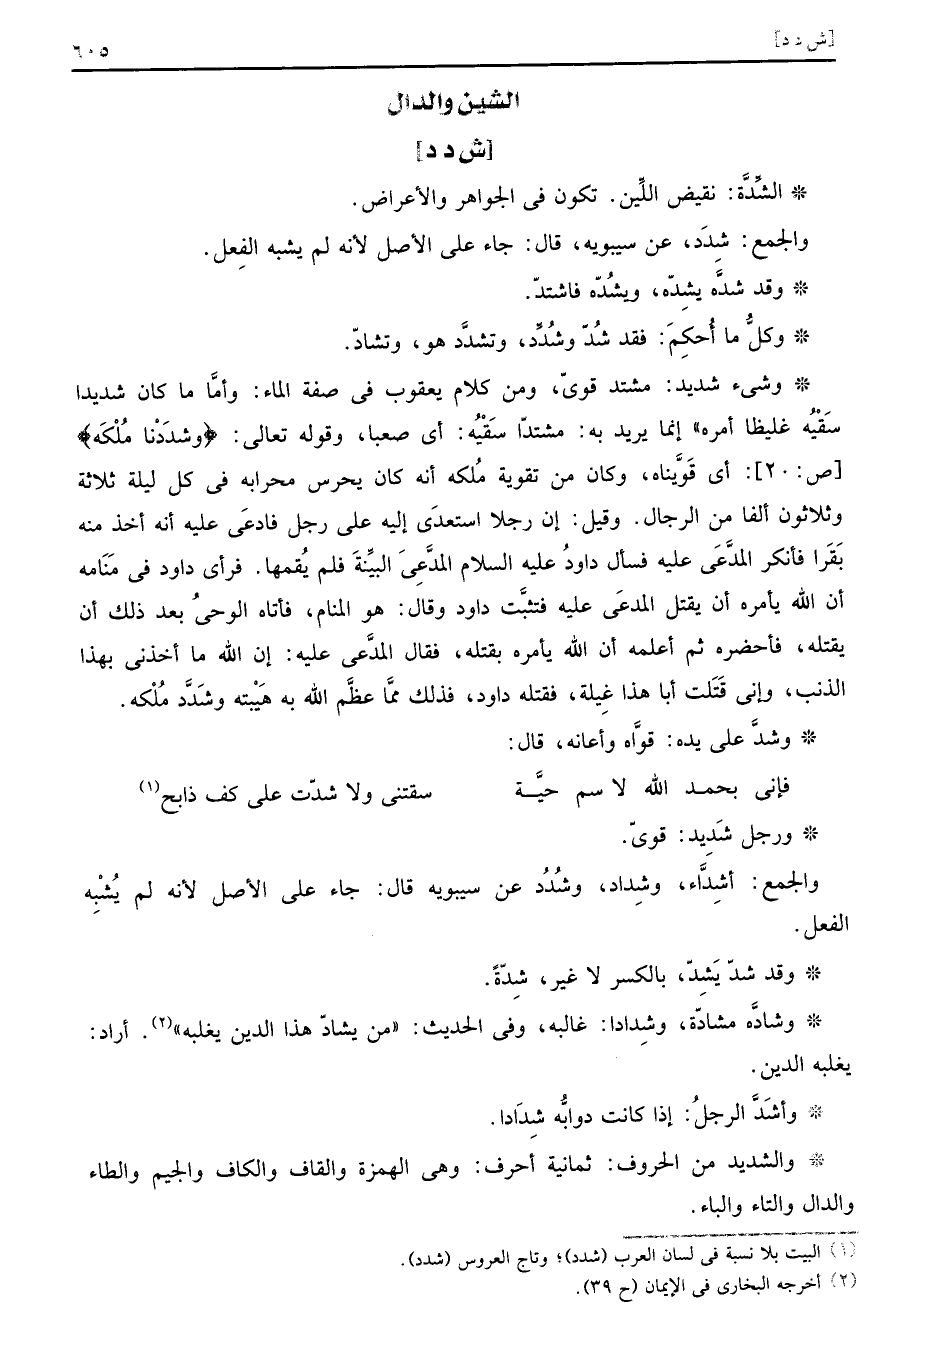 [ش د د]
٦٠٥
الشين والدال
[ش د د]
* الشِّدَّة: نقيض اللِّين. تكون فى الجواهر والأعراض.
والجمع: شِدَد، عن سيبويه، قال: جاء على الأصل لأنه لم يشبه الفعل.
* وقد شدَّه يشِدّه، ويشُدّه فاشتدّ.
* وكلُّ ما أُحكِمَ: فقد شُدّ وشُدِّد، وتشدَّد هو، وتشادّ.
* وشىء شديد: مشتد قوىّ، ومن كلام يعقوب فى صفة الماء: وأمَّا ما كان شديدا
سَقْيُه غليظا أمره» إنما يريد به: مشتدّا سَقْيُه: أى صعبا، وقوله تعالى: ﴿وشدَدْنا مُلْكَه﴾
[ص: ٢٠]: أى قَوَّيناه، وكان من تقوية مُلكه أنه كان يحرس محرابه فى كل ليلة ثلاثة
وثلاثون ألفا من الرجال. وقيل: إن رجلا استعدَى إليه على رجل فادعَى عليه أنه أخذ منه
بَقَرا فأنكر المدَّعَى عليه فسأل داودُ عليه السلام المدَّعِىَ البيِّنةَ فلم يُقمها. فرأى داود فى مَنَامه
أن الله يأمره أن يقتل المدعَى عليه فتثبَّت داود وقال: هو المنام، فأتاه الوحىُ بعد ذلك أن
يقتله، فأحضره ثم أعلمه أن الله يأمره بقتله، فقال المدَّعى عليه: إن الله ما أخذنى بهذا
الذنب، وإنى قَتَلت أبا هذا غِيلة، فقتله داود، فذلك ممَّا عظَّم الله به هَيْبته وشَدَّد مُلْكه.
* وشدَّ على يده: قوَّاه وأعانه، قال:
فإنى بحمد الله لا سم حيَّـة سقتنى ولا شدّت على كف ذابح(١)
* ورجل شَدِيد: قوىّ.
والجمع: أشِدَّاء، وشِداد، وشُدُد عن سيبويه قال: جاء على الأصل لأنه لم يُشْبِه
الفعل.
* وقد شدّ يَشِدّ، بالكسر لا غير، شِدّةً.
* وشادَّه مشادّة، وشِدادا: غالبه، وفى الحديث: «من يشادّ هذا الدين يغلبه»(٢). أراد:
يغلبه الدين.
* وأشَدَّ الرجلُ: إذا كانت دوابُّه شِدَادا.
* والشديد من الحروف: ثمانية أحرف: وهى الهمزة والقاف والكاف والجيم والطاء
والدال والتاء والباء.
(١) البيت بلا نسبة فى لسان العرب (شدد)؛ وتاج العروس (شدد).
(٢) أخرجه البخارى فى الإيمان (ح ٣٩).